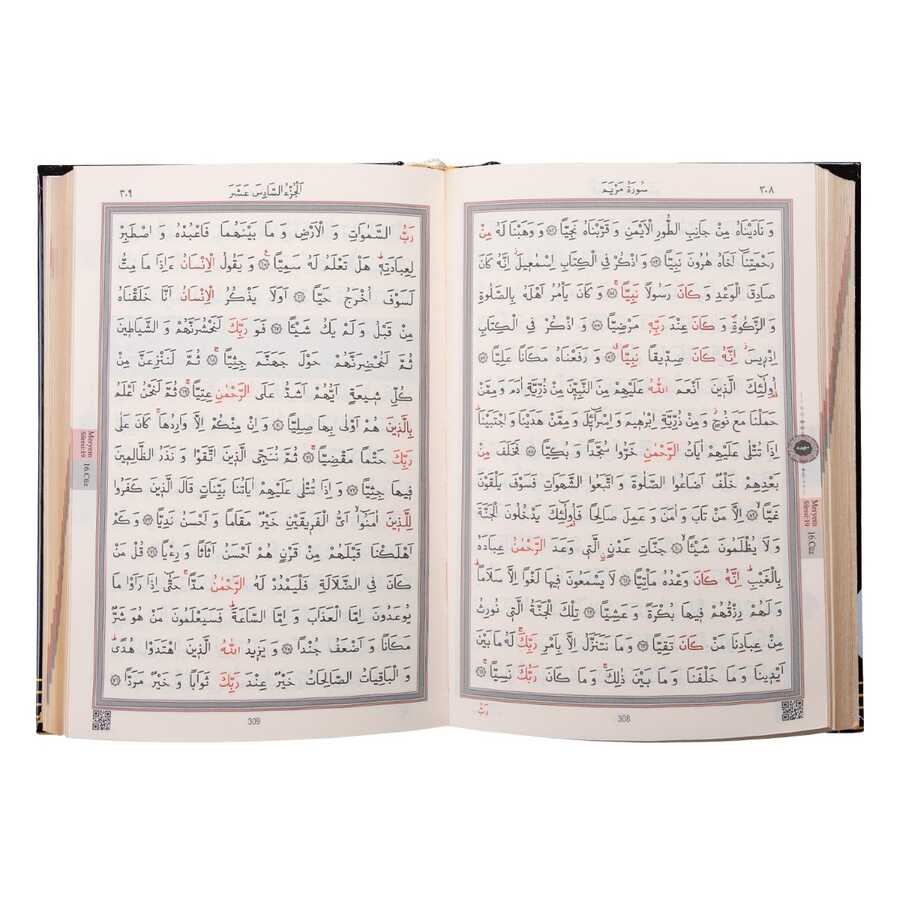 ٣٠٨
سُورَةُ مَرْيَمَ
وَ نَادَيْنَاهُ مِنْ جَانِبِ الطُّورِ الْاَيْمَنِ وَ قَرَّبْنَاهُ نَجِيًّا ﴿٥٢﴾ وَ وَهَبْنَا لَهُ مِنْ
رَحْمَتِنَٓا اَخَاهُ هٰرُونَ نَبِيًّا ﴿٥٣﴾ وَ اذْكُرْ فِي الْكِتَابِ اِسْمٰع۪يلَۘ اِنَّهُ كَانَ
صَادِقَ الْوَعْدِ وَ كَانَ رَسُولًا نَبِيًّاۚ ﴿٥٤﴾ وَ كَانَ يَأْمُرُ اَهْلَهُ بِالصَّلٰوةِ
وَ الزَّكٰوةِۖ وَ كَانَ عِنْدَ رَبِّه۪ مَرْضِيًّا ﴿٥٥﴾ وَ اذْكُرْ فِي الْكِتَابِ
اِدْر۪يسَۘ اِنَّهُ كَانَ صِدّ۪يقًا نَبِيًّاۗ ﴿٥٦﴾ وَ رَفَعْنَاهُ مَكَانًا عَلِيًّا ﴿٥٧﴾
اُو۬لٰٓئِكَ الَّذ۪ينَ اَنْعَمَ اللّٰهُ عَلَيْهِمْ مِنَ النَّبِيّ۪نَ مِنْ ذُرِّيَّةِ اٰدَمَ وَ مِمَّنْ
حَمَلْنَا مَعَ نُوحٍۘ وَ مِنْ ذُرِّيَّةِ اِبْرٰه۪يمَ وَ اِسْرَٓائ۪لَ وَ مِمَّنْ هَدَيْنَا وَ اجْتَبَيْنَاۜ
اِذَا تُتْلٰى عَلَيْهِمْ اٰيَاتُ الرَّحْمٰنِ خَرُّوا سُجَّدًا وَ بُكِيًّا ﴿٥٨﴾ فَخَلَفَ مِنْ
بَعْدِهِمْ خَلْفٌ اَضَاعُوا الصَّلٰوةَ وَ اتَّبَعُوا الشَّهَوَاتِ فَسَوْفَ يَلْقَوْنَ
غَيًّاۙ ﴿٥٩﴾ اِلَّا مَنْ تَابَ وَ اٰمَنَ وَ عَمِلَ صَالِحًا فَاُو۬لٰٓئِكَ يَدْخُلُونَ الْجَنَّةَ
وَ لَا يُظْلَمُونَ شَيْـًٔاۙ ﴿٦٠﴾ جَنَّاتِ عَدْنٍ ۨالَّت۪ي وَعَدَ الرَّحْمٰنُ عِبَادَهُ
بِالْغَيْبِۜ اِنَّهُ كَانَ وَعْدُهُ مَأْتِيًّا ﴿٦١﴾ لَا يَسْمَعُونَ ف۪يهَا لَغْوًا اِلَّا سَلَامًاۜ
وَ لَهُمْ رِزْقُهُمْ ف۪يهَا بُكْرَةً وَ عَشِيًّا ﴿٦٢﴾ تِلْكَ الْجَنَّةُ الَّت۪ي نُورِثُ
مِنْ عِبَادِنَا مَنْ كَانَ تَقِيًّا ﴿٦٣﴾ وَ مَا نَتَنَزَّلُ اِلَّا بِاَمْرِ رَبِّكَۚ لَهُ مَا بَيْنَ
اَيْد۪ينَا وَ مَا خَلْفَنَا وَ مَا بَيْنَ ذٰلِكَۚ وَ مَا كَانَ رَبُّكَ نَسِيًّاۚ ﴿٦٤﴾
رَبُّ
308
Meryem
Sûresi:19
16.Cüz
٣٠٩
اَلْجُزْءُ السَّادِسَ عَشَرَ
رَبُّ السَّمٰوَاتِ وَ الْاَرْضِ وَ مَا بَيْنَهُمَا فَاعْبُدْهُ وَ اصْطَبِرْ
لِعِبَادَتِه۪ۜ هَلْ تَعْلَمُ لَهُ سَمِيًّا۟ ﴿٦٥﴾ وَ يَقُولُ الْاِنْسَانُ ءَاِذَا مَا مِتُّ
لَسَوْفَ اُخْرَجُ حَيًّا ﴿٦٦﴾ اَوَلَا يَذْكُرُ الْاِنْسَانُ اَنَّا خَلَقْنَاهُ
مِنْ قَبْلُ وَ لَمْ يَكُ شَيْـًٔا ﴿٦٧﴾ فَوَ رَبِّكَ لَنَحْشُرَنَّهُمْ وَ الشَّيَاط۪ينَ
ثُمَّ لَنُحْضِرَنَّهُمْ حَوْلَ جَهَنَّمَ جِثِيًّاۚ ﴿٦٨﴾ ثُمَّ لَنَنْزِعَنَّ مِنْ
كُلِّ ش۪يعَةٍ اَيُّهُمْ اَشَدُّ عَلَى الرَّحْمٰنِ عِتِيًّاۚ ﴿٦٩﴾ ثُمَّ لَنَحْنُ اَعْلَمُ
بِالَّذ۪ينَ هُمْ اَوْلٰى بِهَا صِلِيًّا ﴿٧٠﴾ وَ اِنْ مِنْكُمْ اِلَّا وَارِدُهَاۚ كَانَ عَلٰى
رَبِّكَ حَتْمًا مَقْضِيًّاۚ ﴿٧١﴾ ثُمَّ نُنَجِّي الَّذ۪ينَ اتَّقَوْا وَ نَذَرُ الظَّالِم۪ينَ
ف۪يهَا جِثِيًّا ﴿٧٢﴾ وَ اِذَا تُتْلٰى عَلَيْهِمْ اٰيَاتُنَا بَيِّنَاتٍ قَالَ الَّذ۪ينَ كَفَرُوا
لِلَّذ۪ينَ اٰمَنُٓواۙ اَيُّ الْفَر۪يقَيْنِ خَيْرٌ مَقَامًا وَ اَحْسَنُ نَدِيًّا ﴿٧٣﴾ وَ كَمْ
اَهْلَكْنَا قَبْلَهُمْ مِنْ قَرْنٍ هُمْ اَحْسَنُ اَثَاثًا وَ رِءْيًا ﴿٧٤﴾ قُلْ مَنْ
كَانَ فِي الضَّلَالَةِ فَلْيَمْدُدْ لَهُ الرَّحْمٰنُ مَدًّاۚ حَتّٰٓى اِذَا رَاَوْا مَا
يُوعَدُونَ اِمَّا الْعَذَابَ وَ اِمَّا السَّاعَةَۜ فَسَيَعْلَمُونَ مَنْ هُوَ شَرٌّ
مَكَانًا وَ اَضْعَفُ جُنْدًا ﴿٧٥﴾ وَ يَز۪يدُ اللّٰهُ الَّذ۪ينَ اهْتَدَوْا هُدًىۜ
وَ الْبَاقِيَاتُ الصَّالِحَاتُ خَيْرٌ عِنْدَ رَبِّكَ ثَوَابًا وَ خَيْرٌ مَرَدًّا ﴿٧٦﴾
309
Meryem
Sûresi:19
16.Cüz